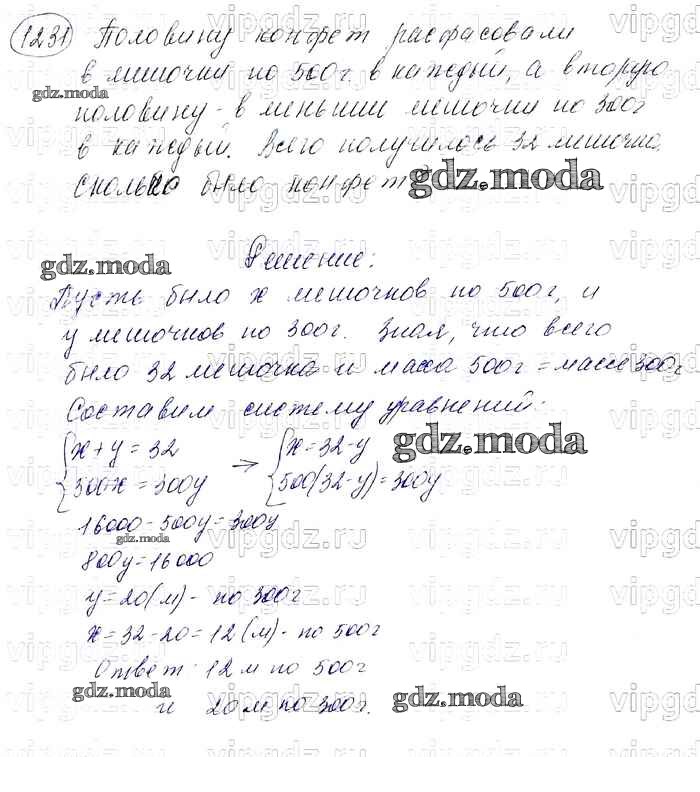 1231 Половину конфет расфасовали
в мешочки по 500г в каждый, а вторую
половину - в меньшие мешочки по 300г
в каждый. Всего получилось 32 мешочка.
Сколько было конфет?
Решение:
Пусть было x мешочков по 500г, и
y мешочков по 300г. Зная, что всего
было 32 мешочка и масса 500г = массе 300г
Составим систему уравнений:
{x + y = 32 → {x = 32 - y
{500x = 300y {500(32 - y) = 300y
16000 - 500y = 300y
800y = 16000
y = 20(м) - по 300г
x = 32 - 20 = 12 (м) - по 500г
Ответ: 12 м по 500г
и 20 м по 300г.
gdz.moda
vipgdz.ru